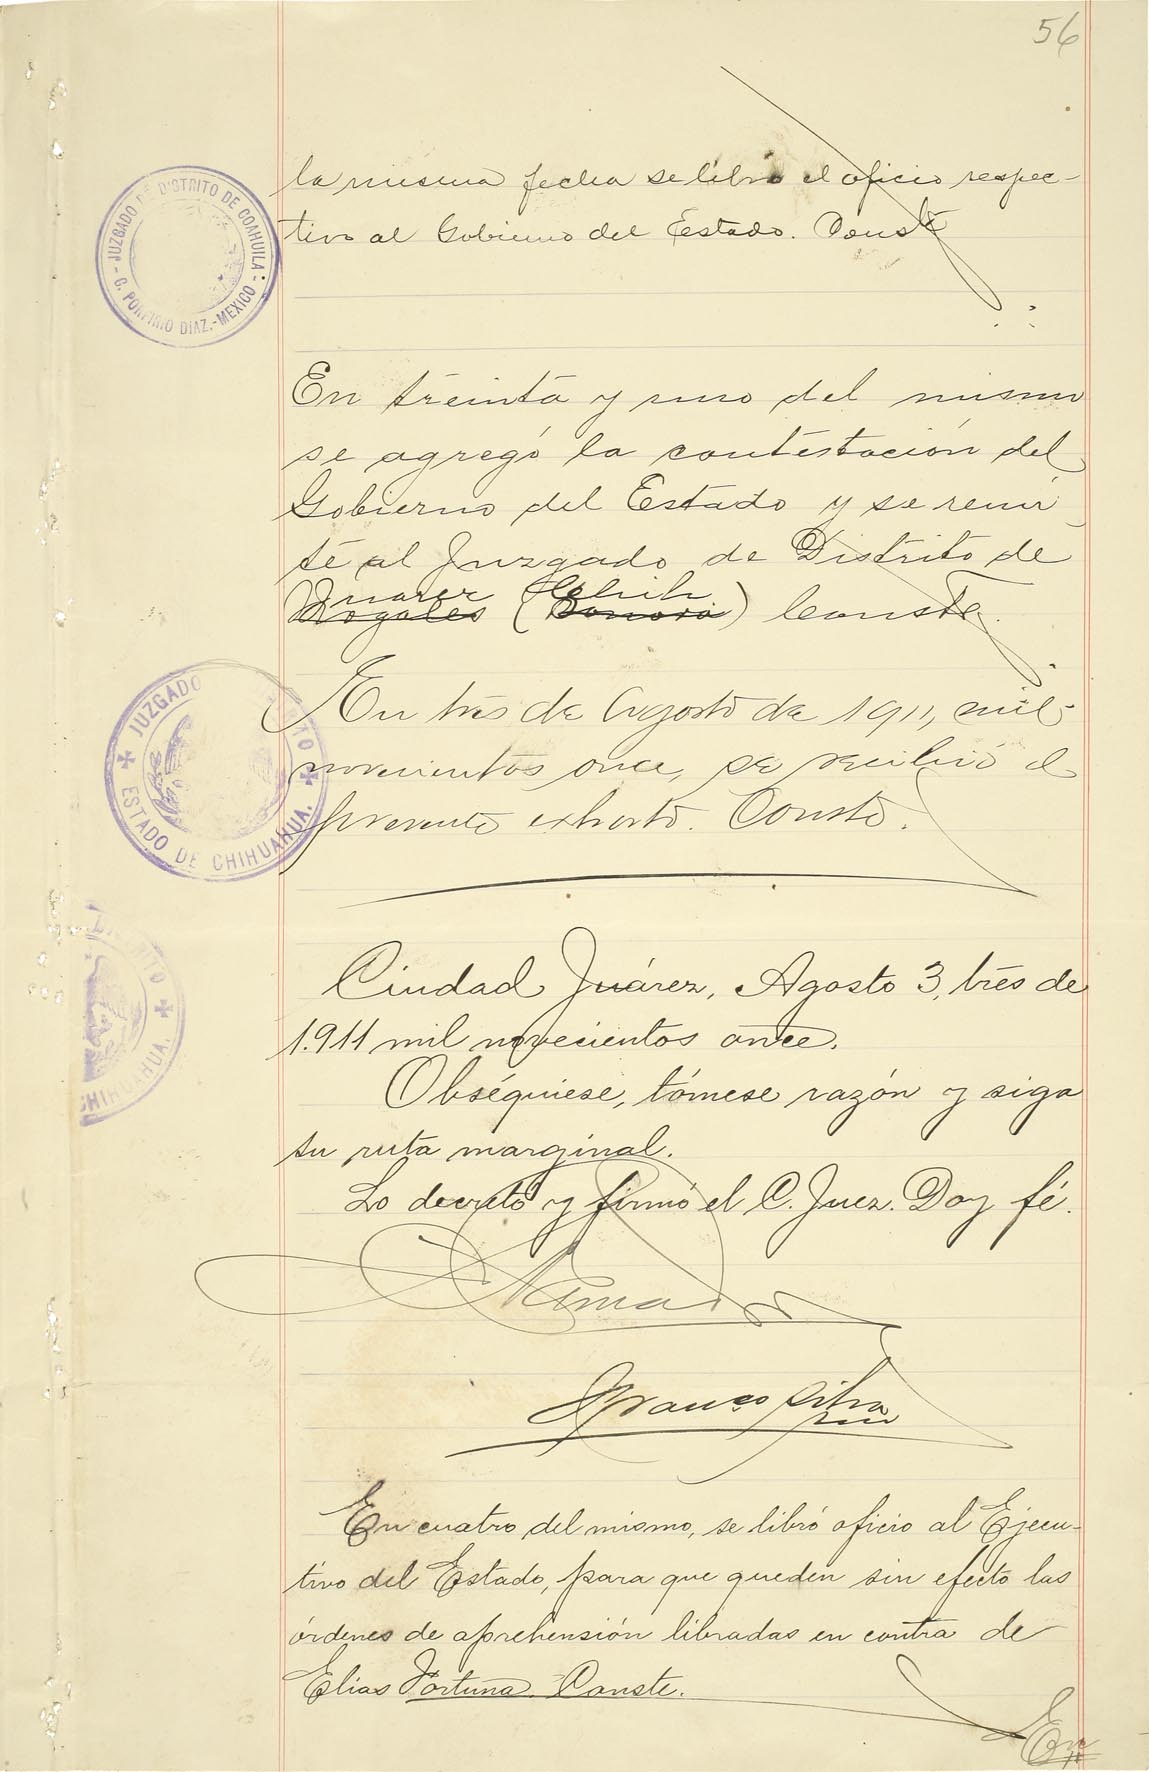 56
la misma fecha se libró el oficio respec-
tivo al Gobierno del Estado. Conste
JUZGADO DE DISTRITO DE COAHUILA
C. PORFIRIO DIAZ.-MEXICO
En treinta y uno del mismo
se agregó la contestación del
Gobierno del Estado y se remi-
te al Juzgado de Distrito de
Juarez Chih
Nogales (Sonora) Conste.
JUZGADO
ESTADO DE CHIHUAHUA.
En tres de Agosto de 1911, mil
novecientos once, se recibió el
presente exhorto. Conste.
CHIHUAHUA.
Ciudad Juárez, Agosto 3, tres de
1.911 mil novecientos once.
Obséquiese, tómese razón y siga
su ruta marginal.
Lo decretó y firmó el C. Juez. Doy fé.
Franco Silva
En cuatro del mismo, se libró oficio al Ejecu-
tivo del Estado, para que queden sin efecto las
órdenes de aprehensión libradas en contra de
Elias Fortuna. Conste.
En